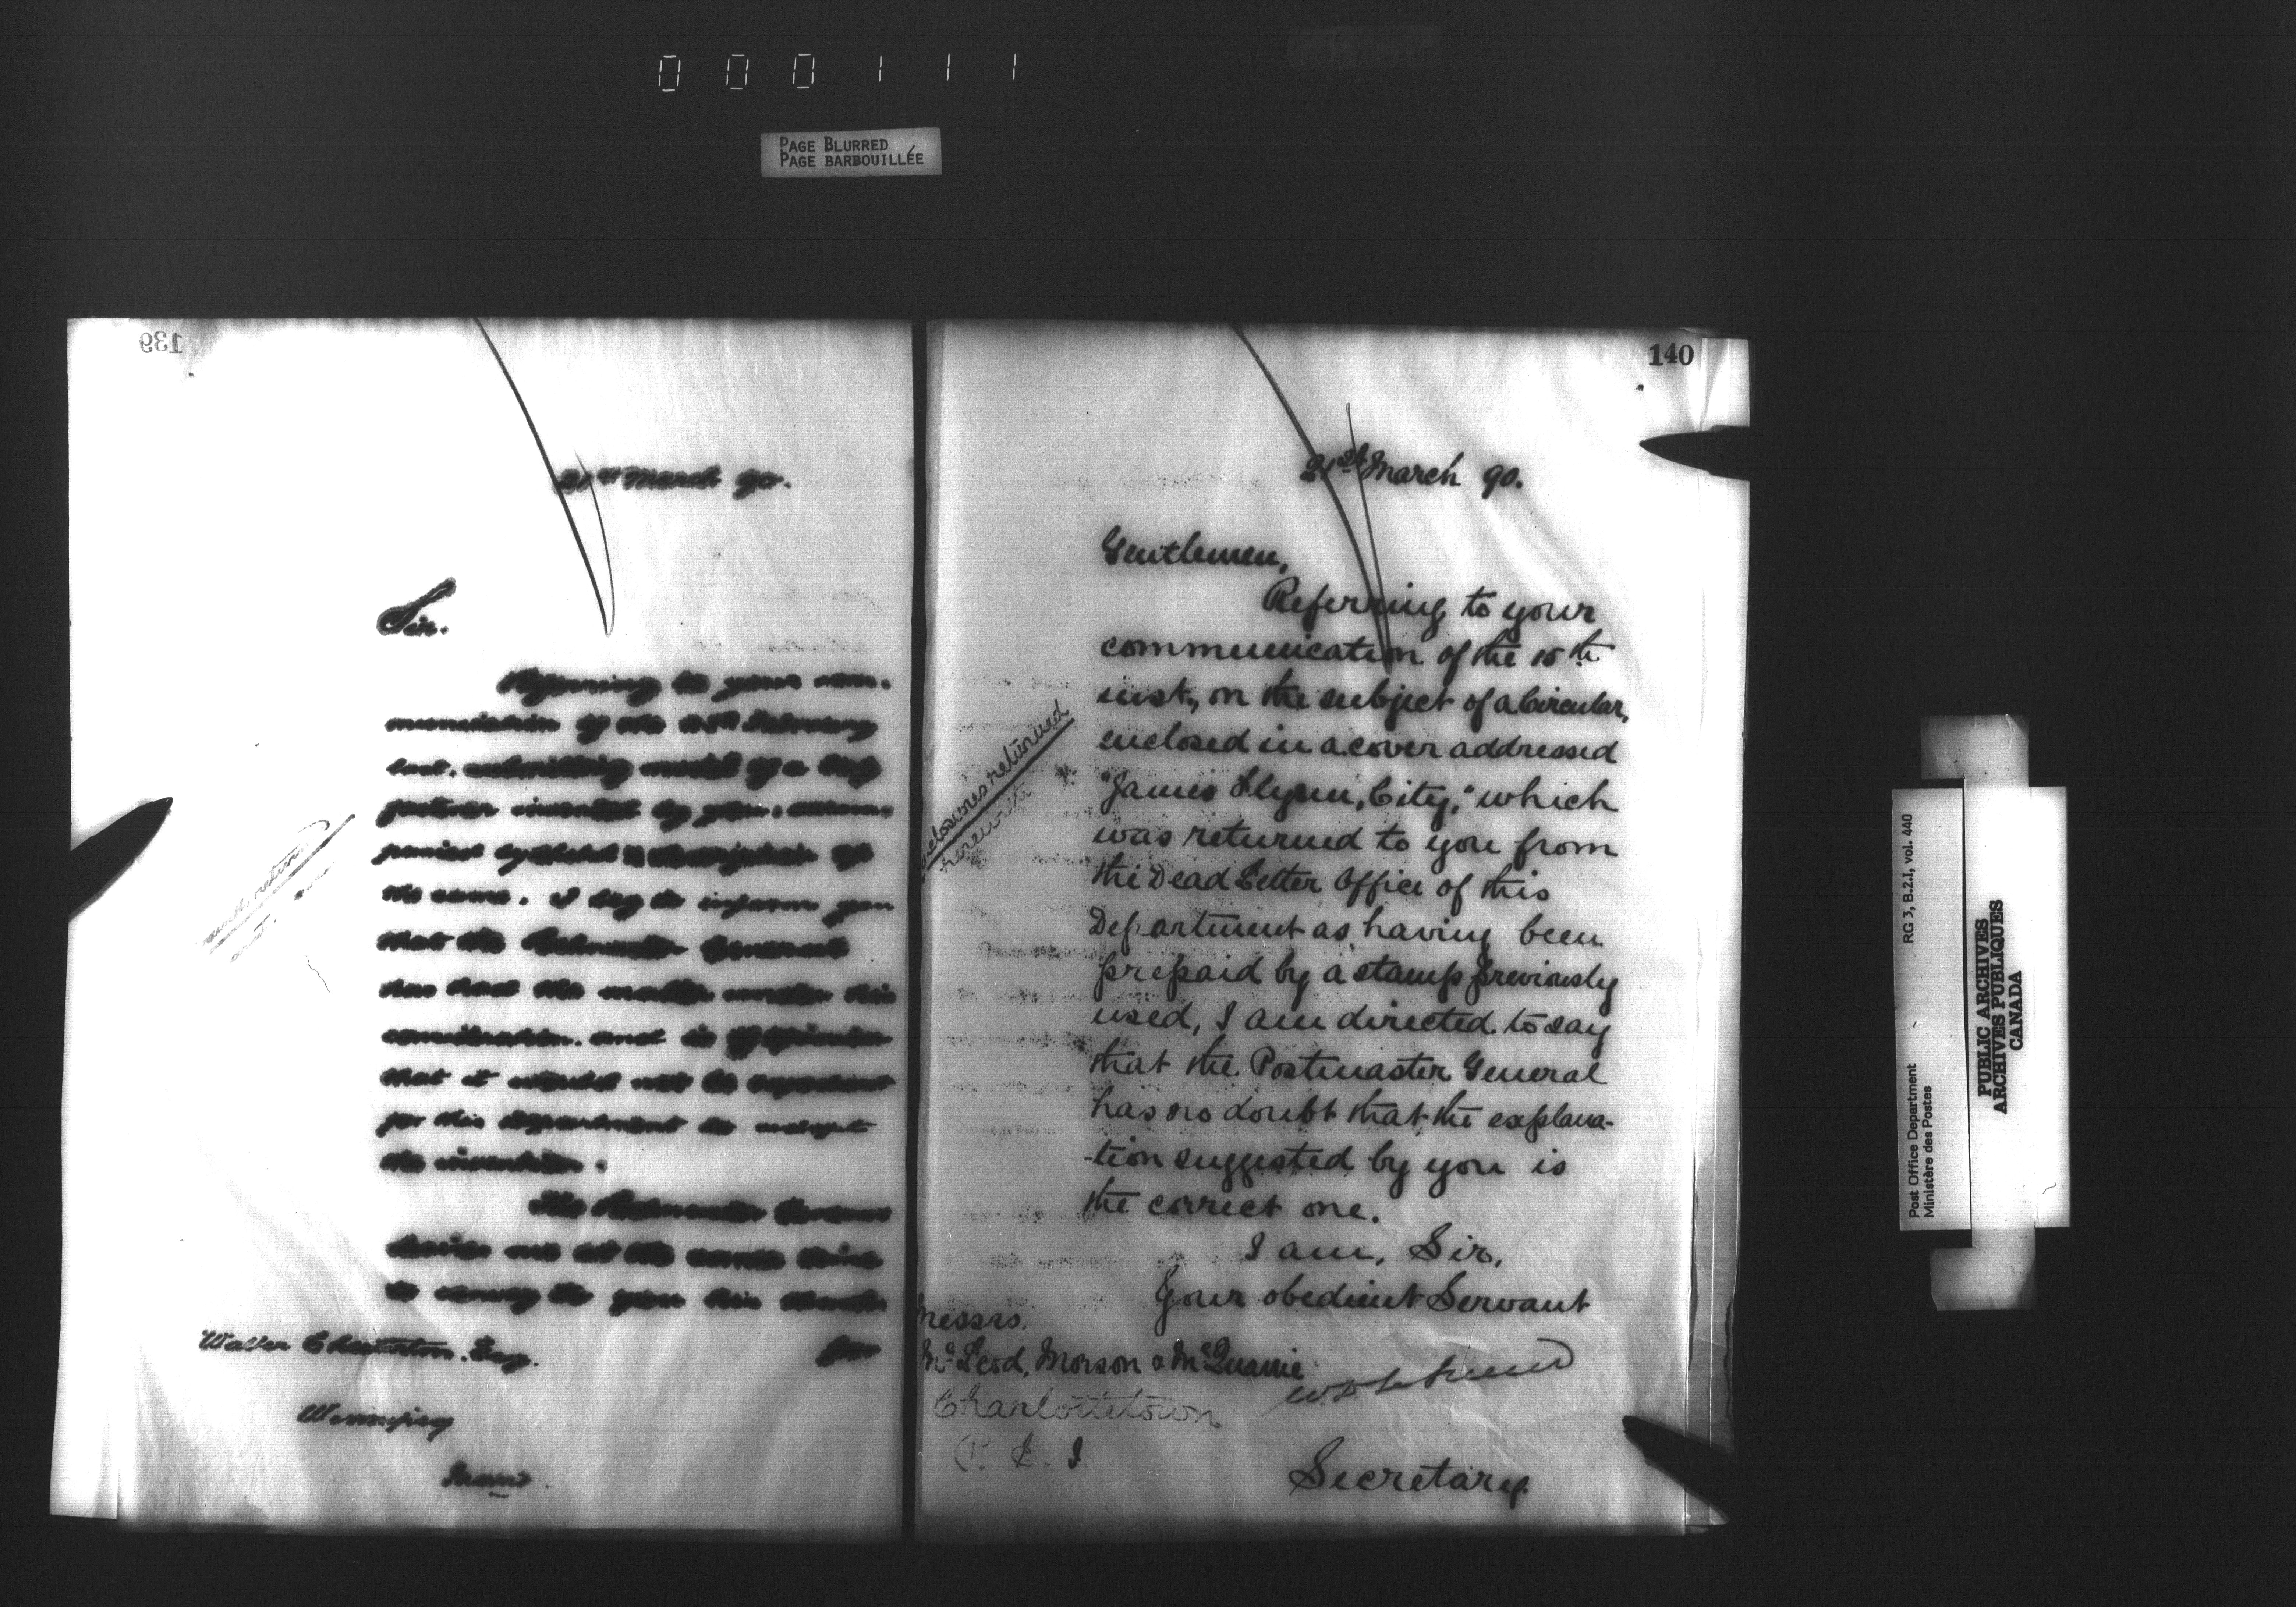 000111
PAGE BLURRED
PAGE BARBOUILLÉE
139
21st March 90.
Sir.
Referring to your com-
munication of the 25th February
last, submitting model of a
invented by you, accom-
description of
the same. I beg to inform you
that the Postmaster General
has had the matter under his
consideration and is of opinion
that it would not be expedient
for this Department to adopt
the invention.
The Postmaster General
desires me at the same time
to convey to you his thanks
for
Walter Chesterton. Esq.
Winnipeg
140
21st March 90.
Gentlemen,
Referring to your
communication of the 15th
inst, on the subject of a Circular,
enclosed in a cover addressed
"James Flynn, City," which
was returned to you from
the Dead Letter Office of this
Department as having been
prepaid by a stamp previously
used, I am directed to say
that the Postmaster General
has no doubt that the explana-
-tion suggested by you is
the correct one.
I am, Sir,
Your obedient Servant
Secretary.
Enclosures returned
herewith
Messrs.
McLeod, Morson & McQuarrie
Charlottetown
P. E. I
Post Office Department
Ministère des Postes
RG 3, B.2.I, vol. 440
PUBLIC ARCHIVES
ARCHIVES PUBLIQUES
CANADA